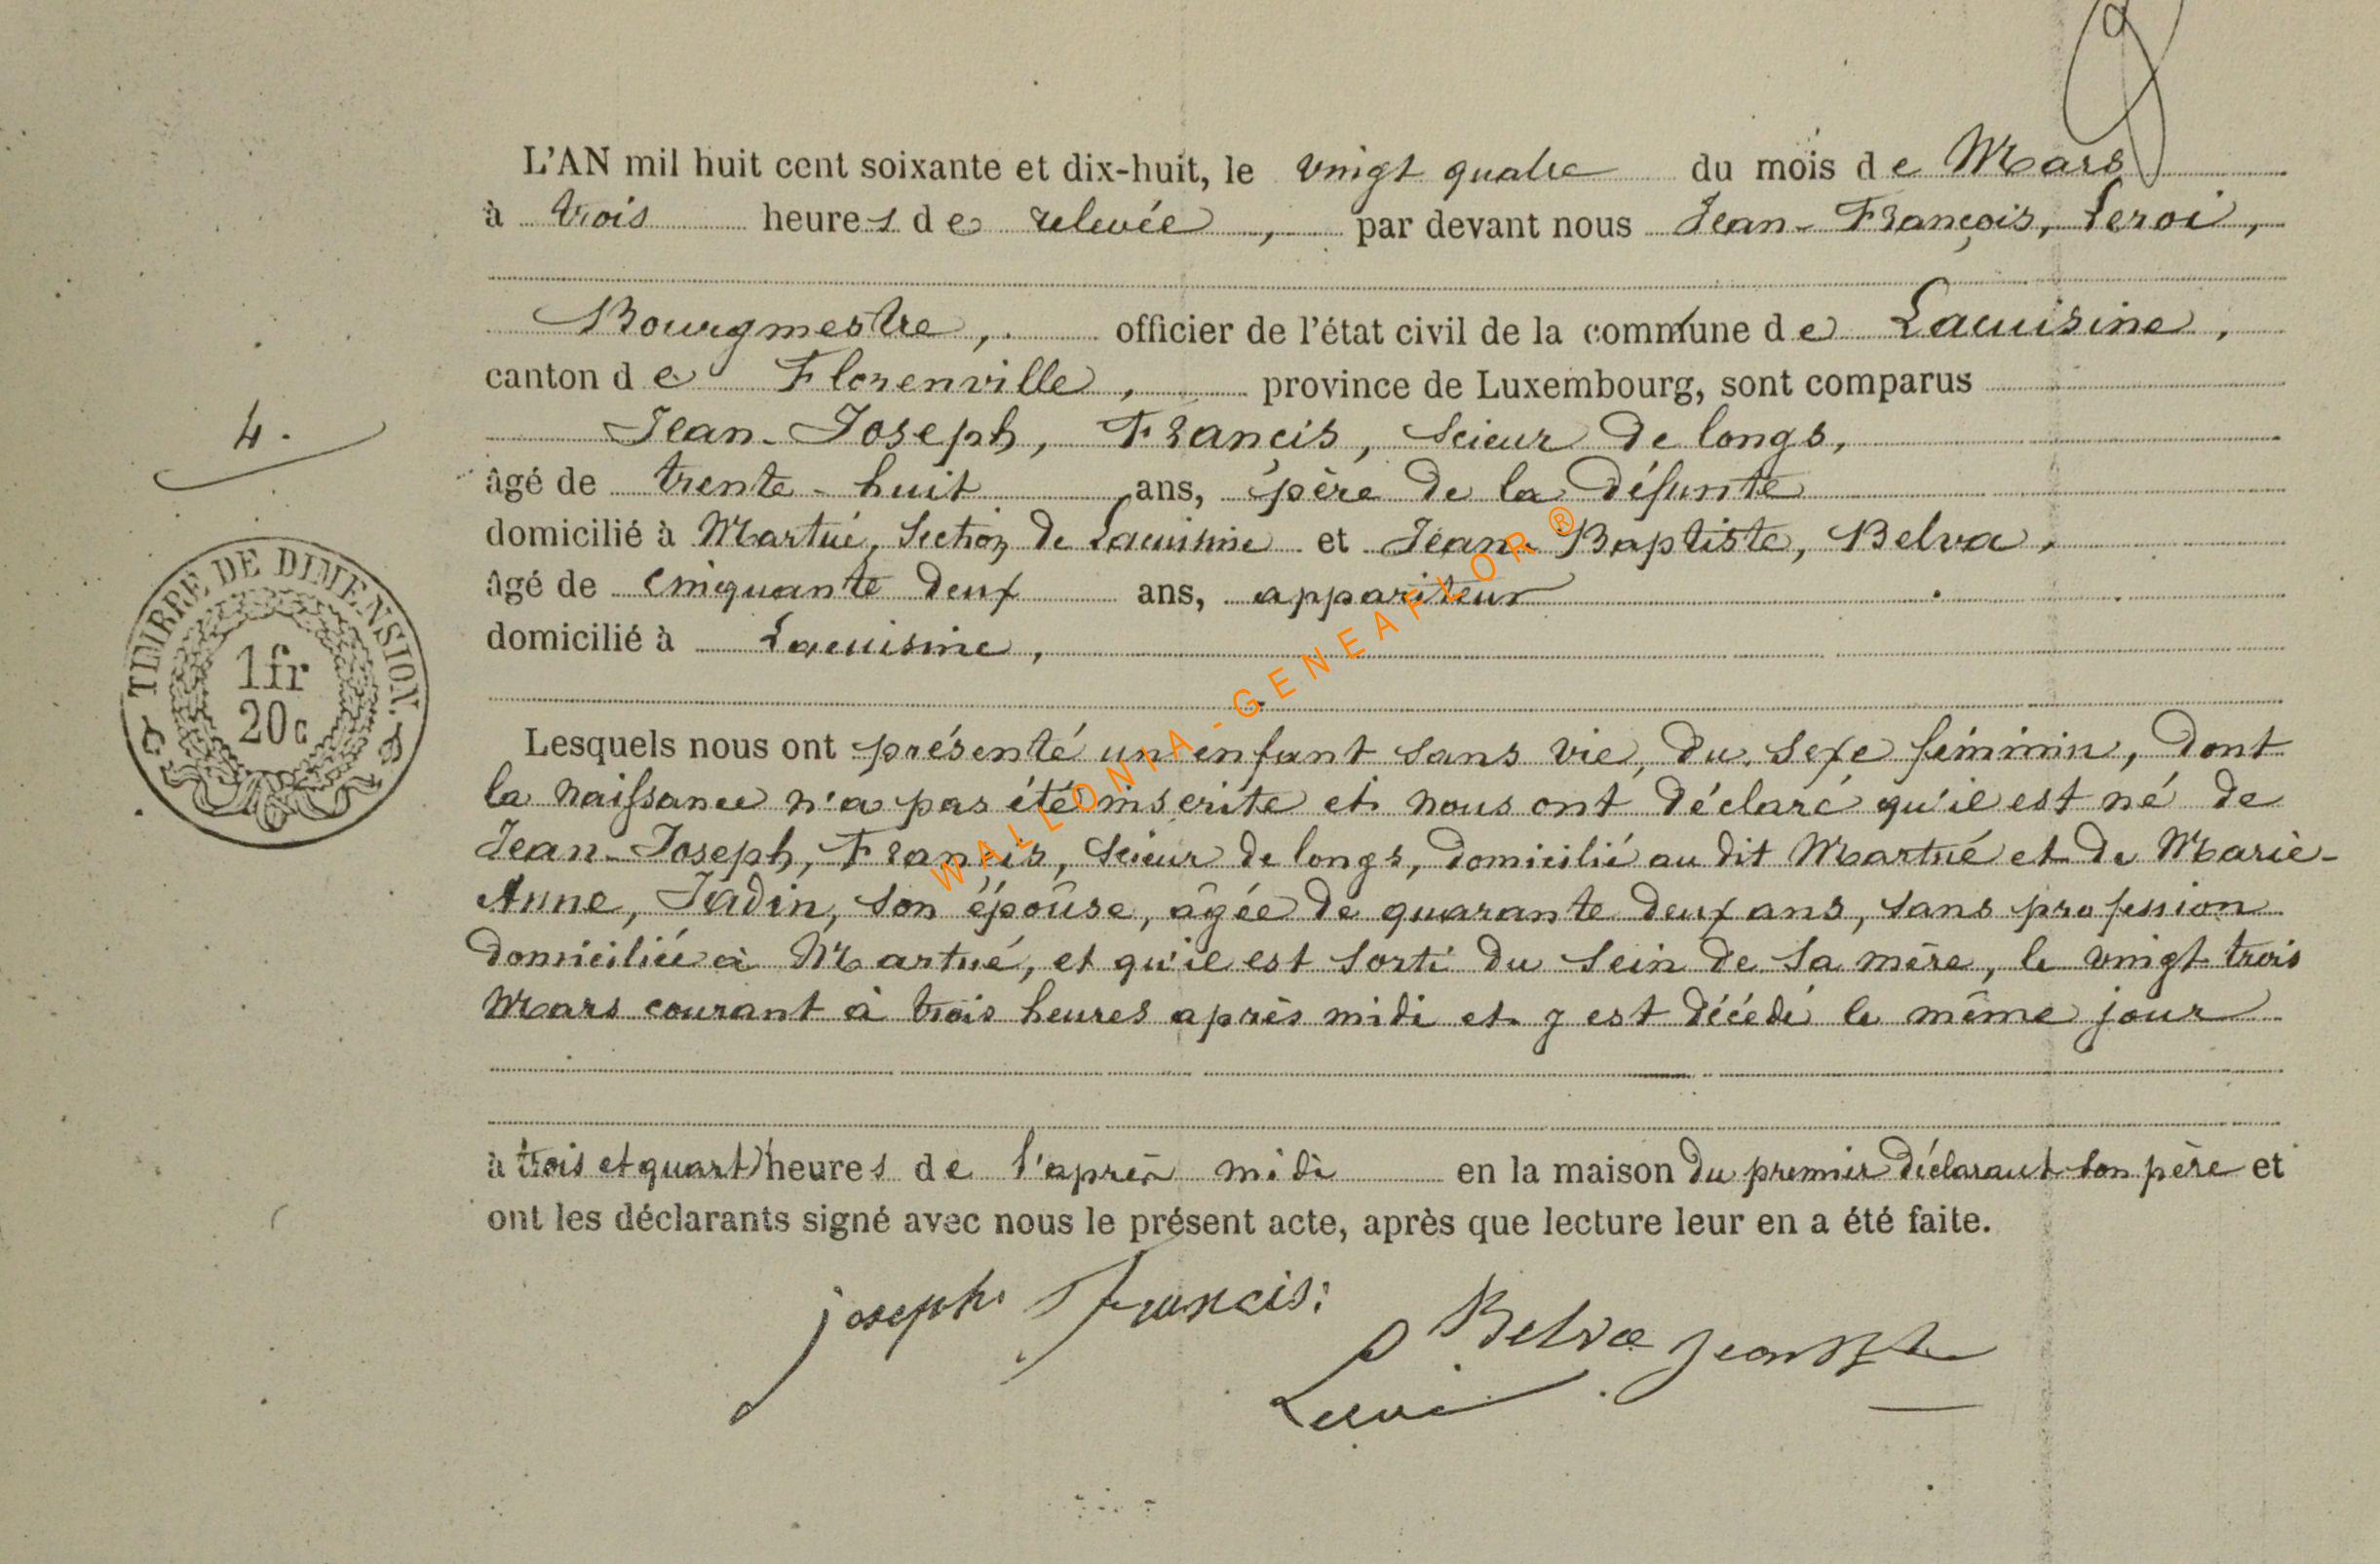 L'AN mil huit cent soixante et dix-huit, le vingt quatre du mois de Mars
à trois heures de relevée, par devant nous Jean-François, Leroi,
Bourgmestre, officier de l'état civil de la commune de Lacuisine,
canton de Florenville, province de Luxembourg, sont comparus
Jean-Joseph, Francis, Scieur de longs,
4.
âgé de trente-huit ans, père de la défunte
domicilié à Martué, Section de Lacuisine et Jean-Baptiste, Belva,
âgé de cinquante deux ans, appariteur
domicilié à Lacuisine,
TIMBRE DE DIMENSION.
1fr
20c
WALLONIA-GENEAFLOR®
Lesquels nous ont présenté un enfant sans vie, du sexe féminin, dont
la naissance n'a pas été inscrite et nous ont déclaré qu'il est né de
Jean-Joseph, Francis, Scieur de longs, domicilié au dit Martué et de Marie-
Anne, Jadin, son épouse, âgée de quarante deux ans, sans profession
domiciliée à Martué, et qu'il est sorti du sein de sa mère, le vingt trois
Mars courant à trois heures après midi et y est décédé le même jour
à trois et quart heures de l'après midi en la maison du premier déclarant son père et
ont les déclarants signé avec nous le présent acte, après que lecture leur en a été faite.
joseph francis
Belva Jean Bte
Leroi